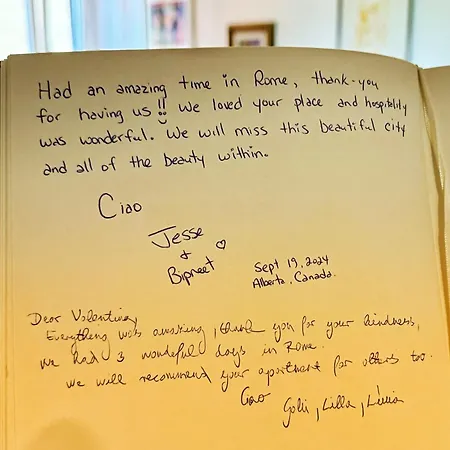 Had an amazing time in Rome, thank-you
for having us!! We loved your place and hospitality
was wonderful. We will miss this beautiful city
and all of the beauty within.
Ciao
Jesse
+
Bipneet
Sept 19, 2024
Alberta, Canada.
Dear Valentina,
Everything was amazing, thank you for your kindness,
we had 3 wondeful days in Rome.
We will recommend your apartment for others too.
Ciao
Lilla,